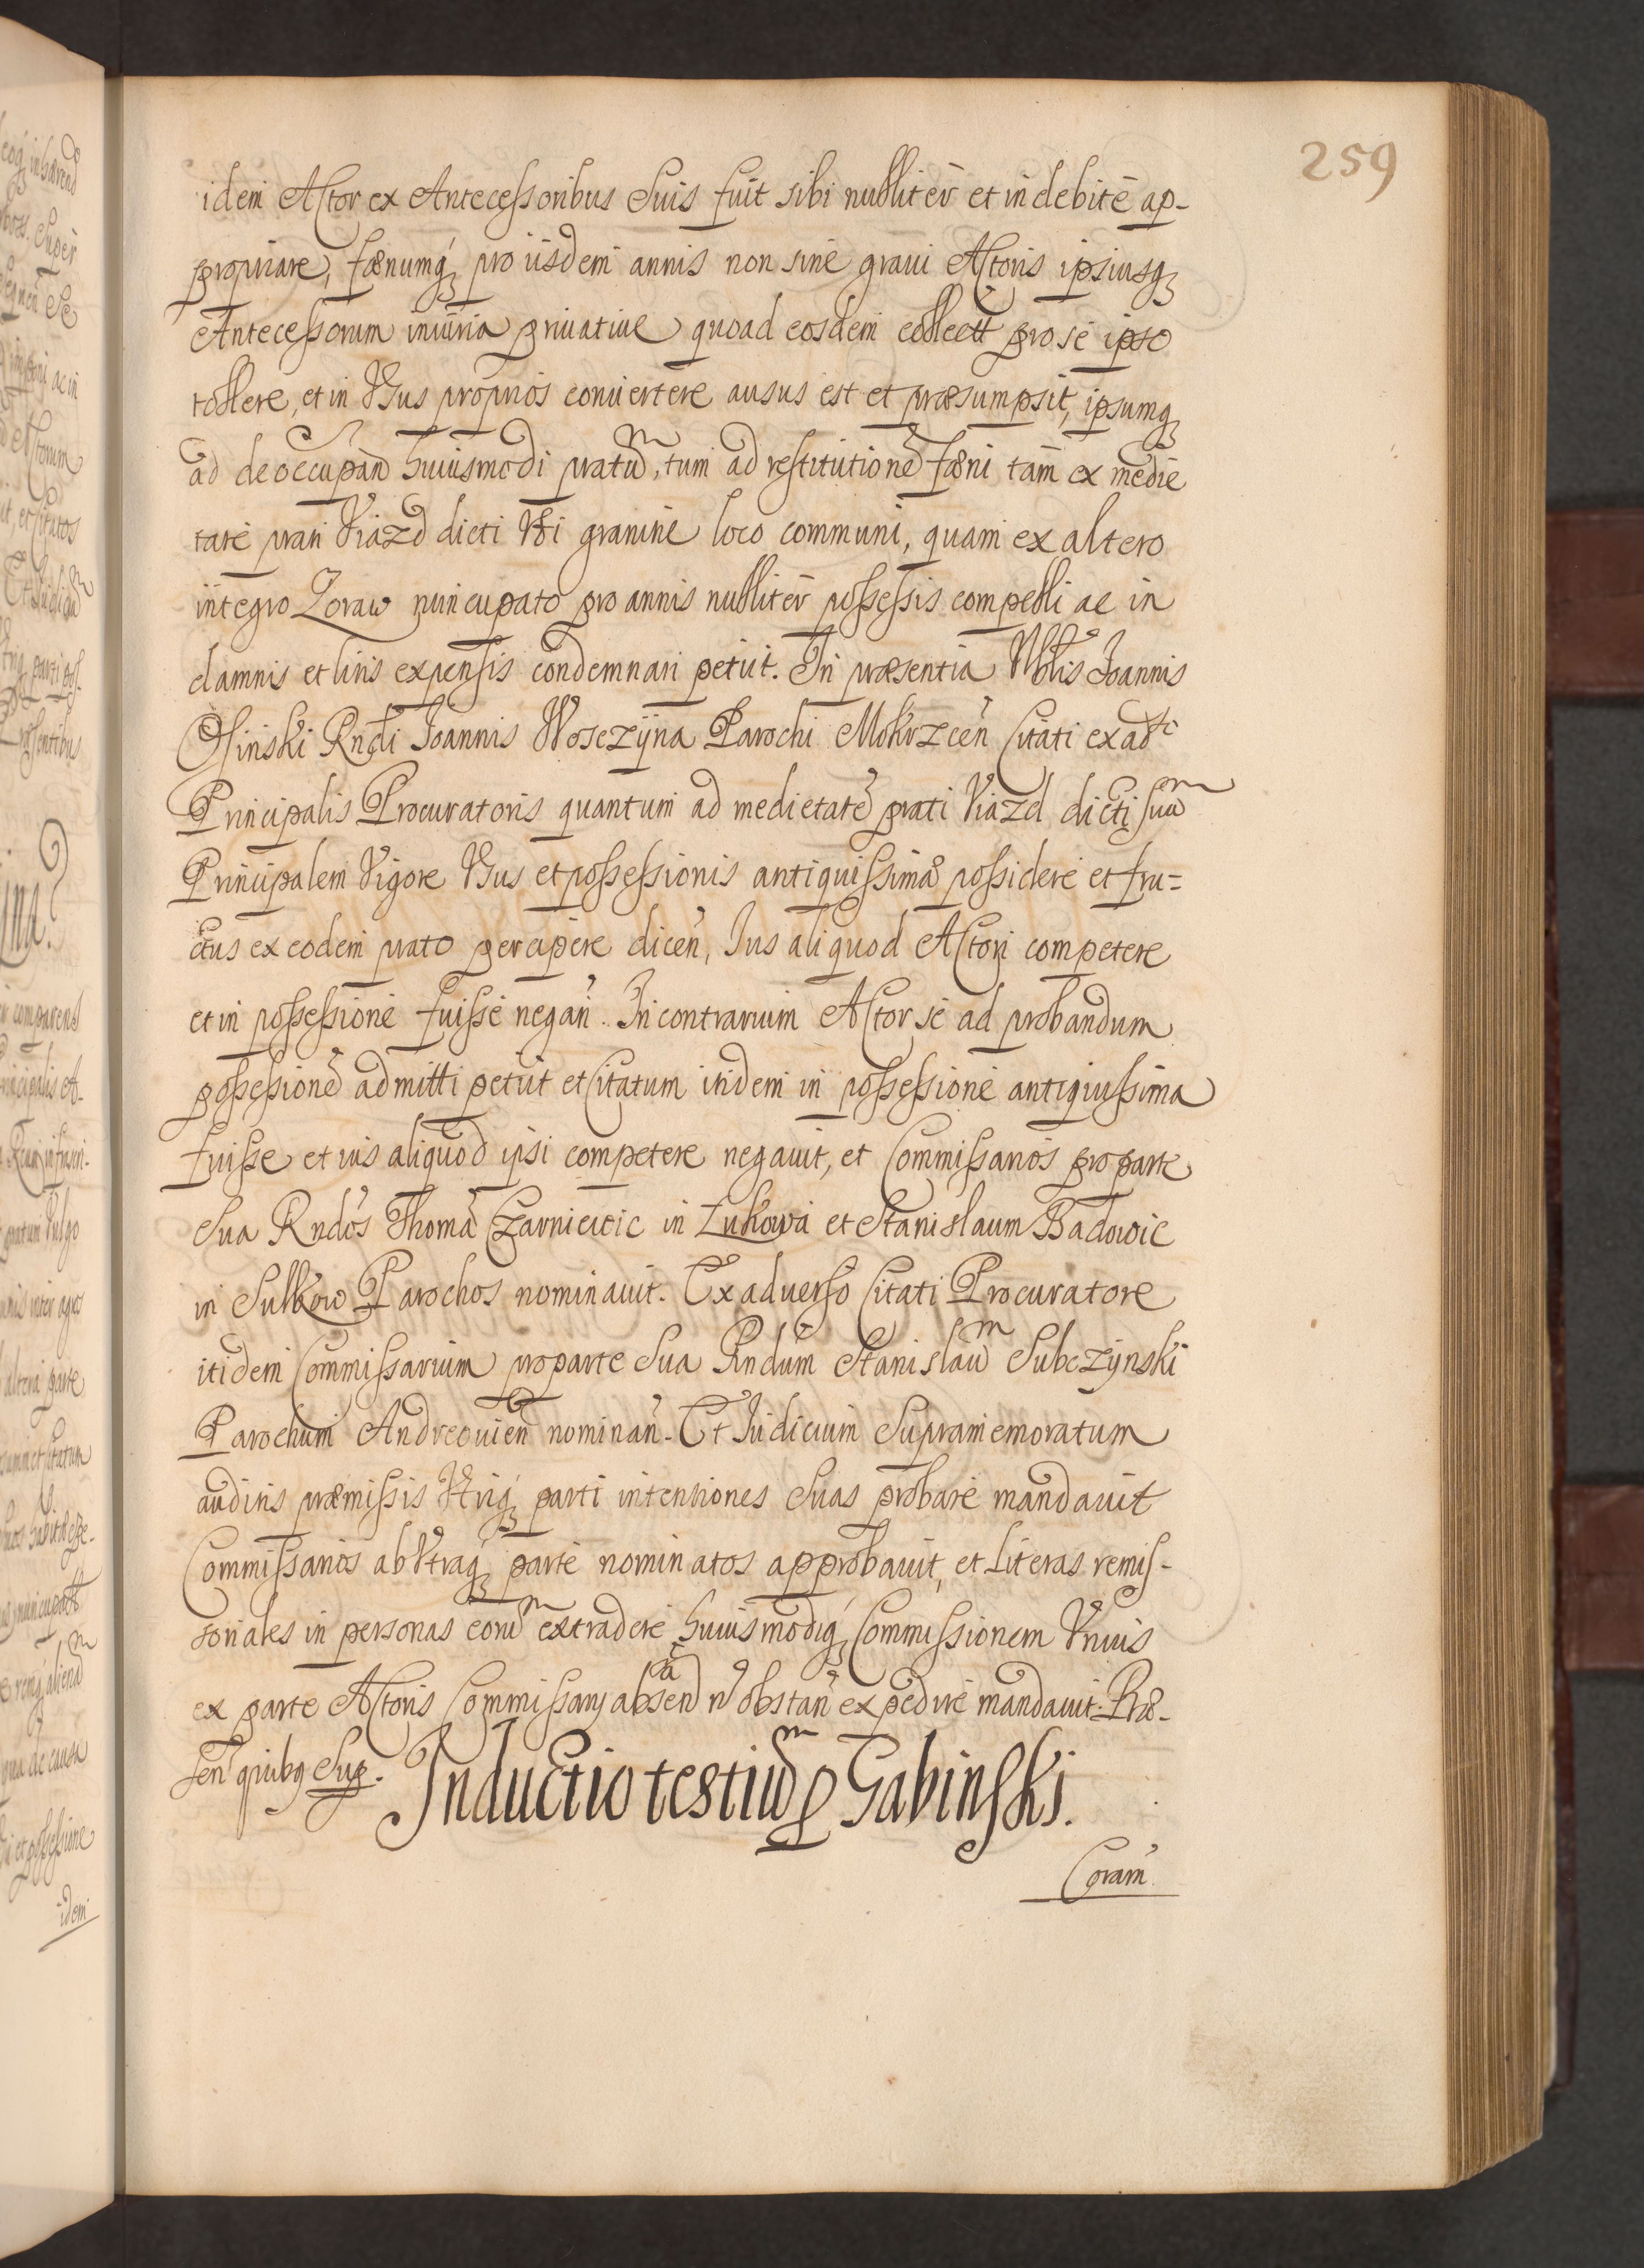 259
idem Actor ex Antecessoribus Suis fuit sibi nulliter et indebite ap-
propriare, fœnumq₃ pro iisdem annis non sine graui Actoris ipsiusq₃
Antecessorum iniuria priuatiue quoad eosdem collectt pro se ipso
tollere, et in Vsus proprios conuertere ausus est et præsumpsit, ipsumq₃
ad deoccupan̄ huiusmodi pratū, tum ad restitutionē fœni tam ex medie
tate prati Viazd dicti Vti gramine loco communi, quam ex altero
integro Zoraw nuncupato pro annis nulliter possessis compelli ac in
damnis et litis expensis condemnari petut. In præsentia Nblis Joannis
Osinski Rndi Joannis Wosczÿna Parochi Mokrzcen̄ Citati ex adᵗⁱ
Principalis Procuratoris quantum ad medietatē prati Viazd dicti suū
Principalem Vigore Vsus et possessionis antiquissimæ possidere et fru=
ctus ex eodem prato percipere dicen̄, Ius aliquod Actori competere
et in possessione fuisse negan̄. In contrarium Actor se ad probandum
possessionē admitti petut et Citatum itidem in possessione antiquissima
fuisse et ius aliquod ipsi competere negauit, et Commissarios pro parte
Sua Rndos Thomā Czarniewic in Łukowa et Stanislaum Badowic
in Sulkow Parochos nominauit. Ex aduerso Citati Procuratore
itidem Commissarium pro parte Sua Rndum Stanislaū Subczÿnski
Parochum Andreouien̄ nominan̄. Et Iudicium Supramemoratum
auditis præmissis Vtriq₃ parti intentiones Suas probare mandauit
Commissarios ab Vtraq₃ parte nominatos approbauit, et Literas remis-
soriales in personas eorū extradere huiusmodiq₃ Commissionem Vnius
ex parte Actoris Commissarij absenᵃ n̄ obstan̄ expedire mandauit. Præ-
sen̄ quibꝗ Sup.
Inductio testiū ꝑ Gabinski.
Coram